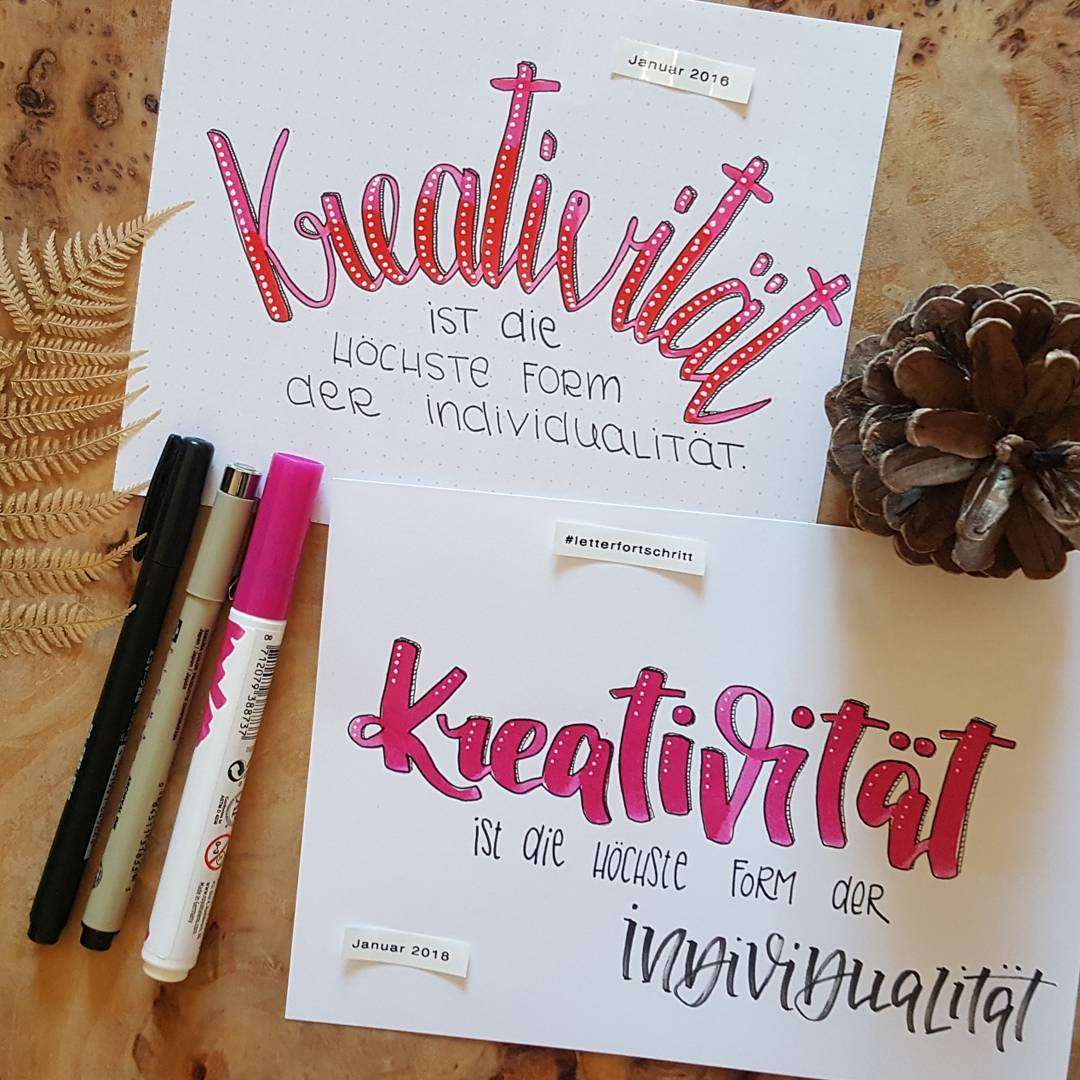 Januar 2016
Kreativität
ist die
HÖCHSTE FORM
der individualität.
#letterfortschritt
Kreativität
ist die HÖCHSTE FORM der
individualität
Januar 2018
8 712079 388737